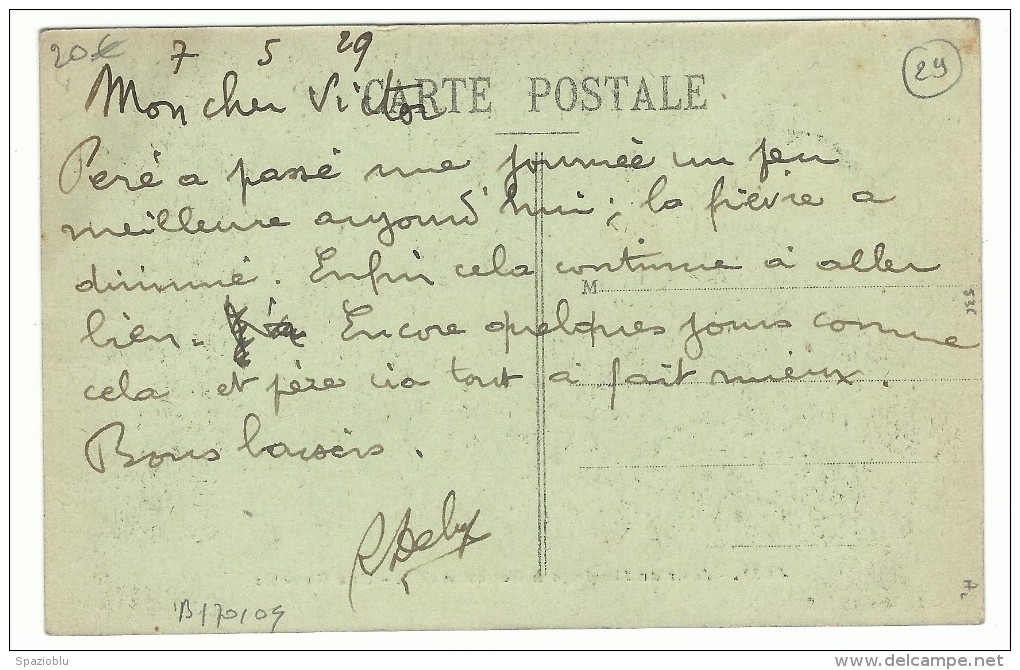 20€ 7 5 29
29
Mon cher Victor
CARTE POSTALE
Peré a passé une journéé un peu
meilleure aujourd'hui ; la fièvre a
diminué. Enfin cela continue à aller
M
bien. Encore quelques jours comme
cela et père ira tout à fait mieux.
Bons baisers.
B170109
Spazioblu
delcampe.net